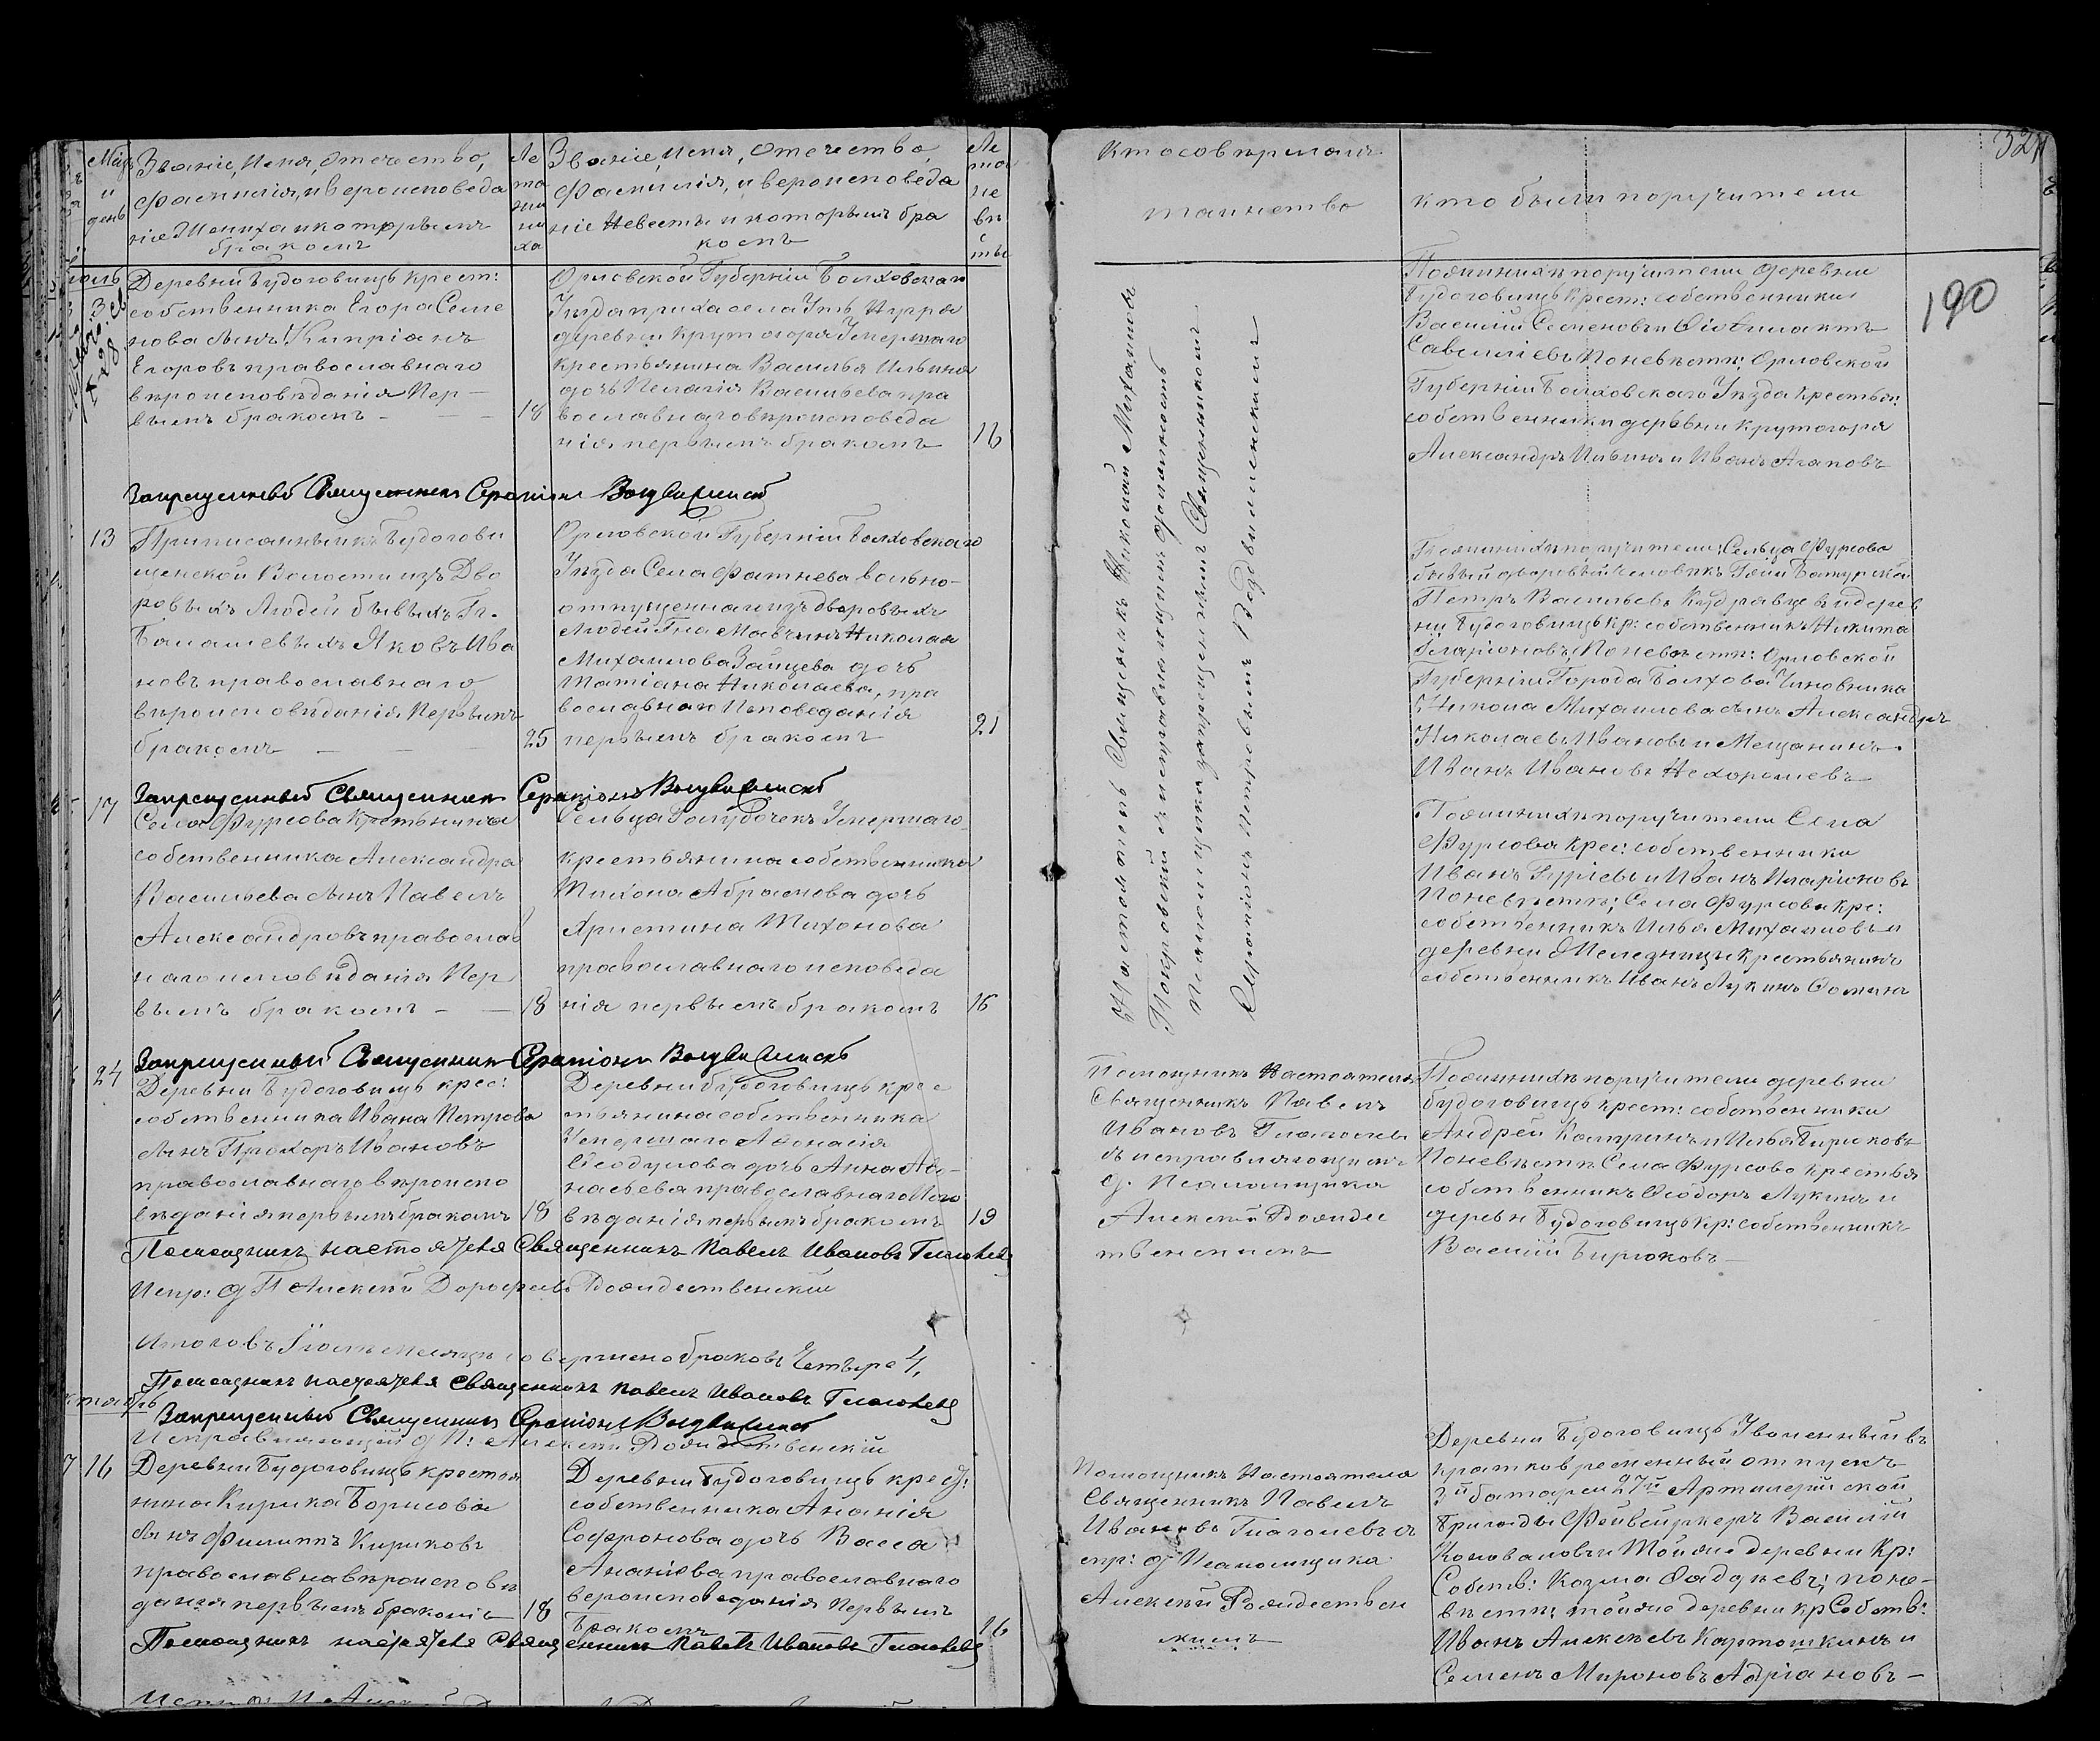 Мцъ
и
день
Званіе, Имя, отечество,
фамилія, и вероисповеда
ніе Жениха и которымъ
бракомъ
Ле
та
же
ни
ха
Званіе, имя, отечество
Фамилія, и вероисповеда
ніе Невесты и которымъ бра
комъ
Ле
та
не
вѣ
с
ты
Кто совершалъ
таинство
кто были поручители
190
3
Деревни Будоговищъ крест:
собственника Егора Семе
нова сынъ Кипріанъ
Егоровъ православнаго
вѣроисповѣданія Пер
вымъ бракомъ
18
Орловской Губерніи Болховскаго
Уѣзда прихода села
деревни Крутогоря Умершаго
крестьянина Василья Ильина
дочь Пелагія Васильева пра
вославнаго вѣроисповеда
нія первымъ бракомъ
16
Пожениxѣ поручители деревни
Будоговищъ крест: собственники
Василій Семеновъ и
Савельевъ Поневѣсте; Орловской
Губерніи Болховскаго Уѣзда крестьян:
собственники деревни Крутогоря
Александръ Ильинъ и Иванъ Агаповъ
Запрещенный Священникъ Серапіонъ Воздвиженскій
13
Приписанный къ Будогови
щенской Волости изъ Дво
ровыхъ Людей бывыхъ Гг.
Яковъ Ива
новъ православнаго
вѣроисповѣданія Первымъ
бракомъ
25
Орловской Губерніи Болховскаго
Уѣзда Села Фатнева вольно-
отпущеннаго изъ дворовыхъ
людей Гна Николая
Михаилова Зайцева дочь
Татіана Николаева, пра
вославнаго Исповеданія
первымъ бракомъ
21
Пожениxѣ поручители; Сельца Фурсова
бывый дворовый человѣкъ Гжи
Петръ Васильевъ Кудрявцевъ и дерев
ни Будоговищъ кр: собственникъ Никита
Иларіоновъ, Поневѣсте: Орловской
Губерніи Города Болхова Чиновника
Михаилова сынъ Александръ
Николаевъ Ивановъ и Мещанинъ
Иванъ Ивановъ Нехорошевъ
Запрещенный Священникъ Серапіонъ Воздвиженскій
17
Села Фурсова Крестьянина
собственника Александра
Васильева сынъ Павелъ
Александровъ православ
наго исповѣданія Пер
вымъ бракомъ
18
Сельца Голубочекъ Умершаго
крестьянина собственника
Тихона Абрамова дочь
Христина Тихонова
православнаго исповеда
нія первымъ бракомъ
16
Пожениxѣ поручители Села
Фурсова Крес: собственники
Иванъ Гурьевъ и Иванъ Иларіоновъ
Поневѣсте; Села Фурсова кре:
собственникъ Илья Михаиловъ и
деревни Железницы Крестьянинъ
собственникъ Иванъ Лукинъ Фоминъ
Настоятель Священникъ Николай Михаиловъ
Покровскій съ исправляющимъ должность
псаломщика запрещеннымъ Священникомъ
Серапіонъ Петровымъ Воздвиженскимъ
Запрещенный Священникъ Серапіонъ Воздвиженскій
24
Деревни Будоговищъ крес:
собственника Ивана Петрова
сынъ Прохоръ Ивановъ
православнаго вѣроиспо
вѣданія первымъ бракомъ
18
Деревни Будоговищъ крес
тьянина собственника
Умершаго Афонасія
Феодулова дочь Анна Афо-
насьева православнаго Испо
вѣданія первымъ бракомъ
19
Помощникъ Настоятеля
Священникъ Павелъ
Ивановъ Глаголевъ
съ исправляющимъ
д. Псаломщика
Алексей Рождес
твенскимъ
Пожениxѣ поручители деревни
Будоговищъ крест: собственники
Андрей и Илья Бирюковъ
Поневѣсте Села Фурсово крестья
собственникъ Феодоръ Лукинъ и
дерев Будоговищъ кр: собственникъ
Василій Бирюковъ
Помощникъ настоятеля Священникъ Павелъ Ивановъ Глаголевъ
Испр: д П Алексей Дорофеевъ Рождественскій
Итого въ Іюле месяце совершено браковъ Четыре 4,
Помощникъ настоятеля Священникъ Павелъ Ивановъ Глаголевъ
Запрещенный Священникъ Серапіонъ Воздвиженскій
Исправляющій д П: Алексей Рождественскій
7
16
Деревни Будоговищъ крестья
нина Кирика Борисова
сынъ Филиппъ Кириковъ
православна вѣроисповѣ
данія первымъ бракомъ
18
Деревни Будоговищъ крест:
собственника Ананія
Софронова дочь Васса
Ананіева православнаго
вероисповеданія Первымъ
Бракомъ
16
Помощникъ Настоятеля
Священникъ Павелъ
Ивановъ Глаголевъ с
испр: д Псаломщика
Алексей Рождествен
скимъ
Деревни Будоговищъ Уволенный въ
кратковременный отпускъ
3й батареи 27й Артилерійской
бригады Фейверкеръ Василій
Коноваловъ и Тойже деревни Кр:
Собств: Козма Фадѣевъ; поне-
вѣсте; тойже деревни кр Собств:
Иванъ Алексеевъ Картошкинъ и
Семенъ Мироновъ Адріановъ
Помощникъ настоятеля Священникъ Павелъ Ивановъ Глаголевъ